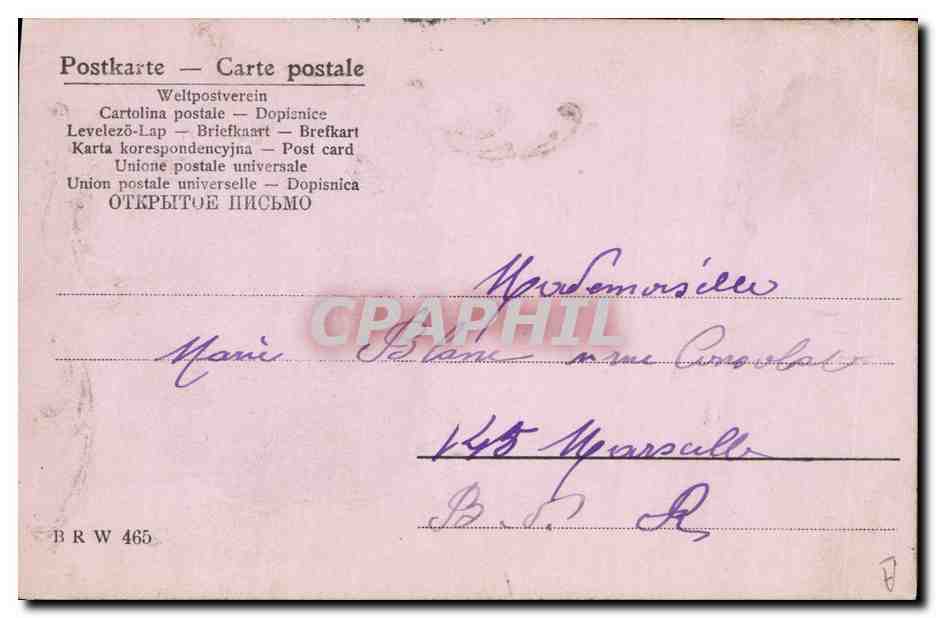 Postkarte — Carte postale
Weltpostverein
Cartolina postale — Dopisnice
Levelező-Lap — Briefkaart — Brefkart
Karta korespondencyjna — Post card
Unione postale universale
Union postale universelle — Dopisnica
ОТКРЫТОЕ ПИСЬМО
Mademoiselle
CPAPHIL
Marie rue Consolat
145 Marseille
B. d. R
B R W 465